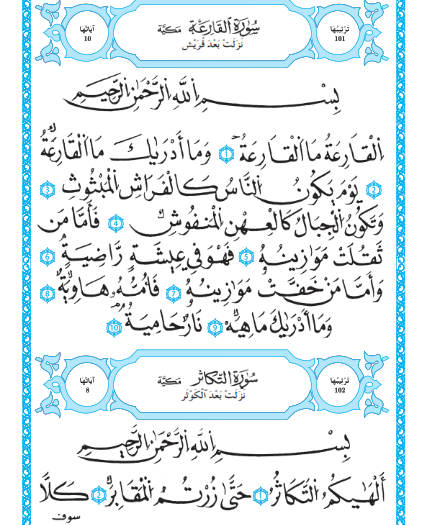 ترتيبها
101
سُورَةُ اُلْقَارِعَةِ مَكِّيَّة
نَزَلَتْ بَعْدَ قُرَيْش
آياتها
10
بِسْمِ اِللَّهِ اِلرَّحْمَٰنِ اِلرَّحِيمِ
اَلْقَارِعَةُ مَا اَلْقَارِعَةُ 1 وَمَا أَدْرَيٰكَ مَا اَلْقَارِعَةُ
2 يَوْمَ يَكُونُ اُلنَّاسُ كَالْفَرَاشِ اِلْمَبْثُوثِ 3
وَتَكُونُ اُلْجِبَالُ كَالْعِهْنِ اِلْمَنفُوشِ 4 فَأَمَّا مَن
ثَقُلَتْ مَوَازِينُهُۥ 5 فَهُوَ فِي عِيشَةٍ رَّاضِيَةٍ 6
وَأَمَّا مَنْ خَفَّتْ مَوَازِينُهُۥ 7 فَأُمُّهُۥ هَاوِيَةٌ 8
وَمَا أَدْرَيٰكَ مَاهِيَهْ 9 نَارٌ حَامِيَةٌ 10
ترتيبها
102
سُورَةُ اُلتَّكَاثُرِ مَكِّيَّة
نَزَلَتْ بَعْدَ اَلْكَوْثَر
آياتها
8
بِسْمِ اِللَّهِ اِلرَّحْمَٰنِ اِلرَّحِيمِ
أَلْهَيٰكُمُ اُلتَّكَاثُرُ 1 حَتَّىٰ زُرْتُمُ اُلْمَقَابِرَ 2 كَلَّا
سوف